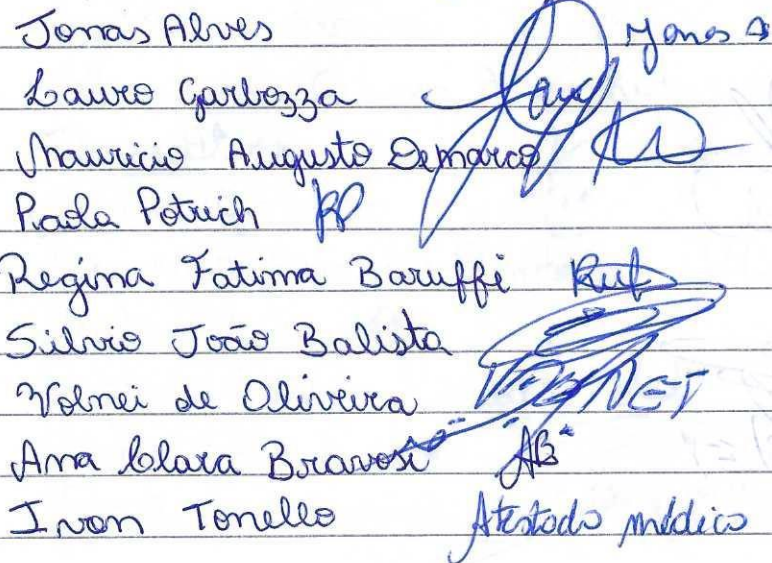 Jonas Alves Jonas A
Lauro Garbozza Lau
Mauricio Augusto Demarco
Paola Potrich PP
Regina Fatima Baruffi Ruf
Silvio João Balista
Volnei de Oliveira VOLNEI
Ana Clara Bravosi AB
Ivon Tonello Atestado médico